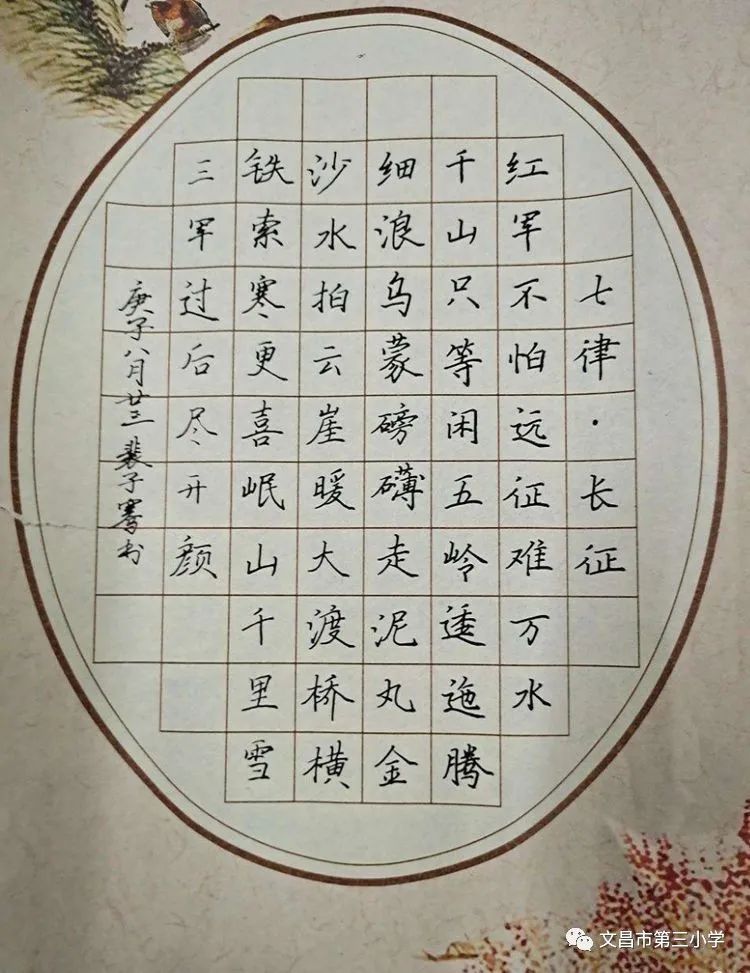 七律·长征
红军不怕远征难万水
千山只等闲五岭逶迤腾
细浪乌蒙磅礴走泥丸金
沙水拍云崖暖大渡桥横
铁索寒更喜岷山千里雪
三军过后尽开颜
庚子八月廿三裴子骞书
文昌市第三小学